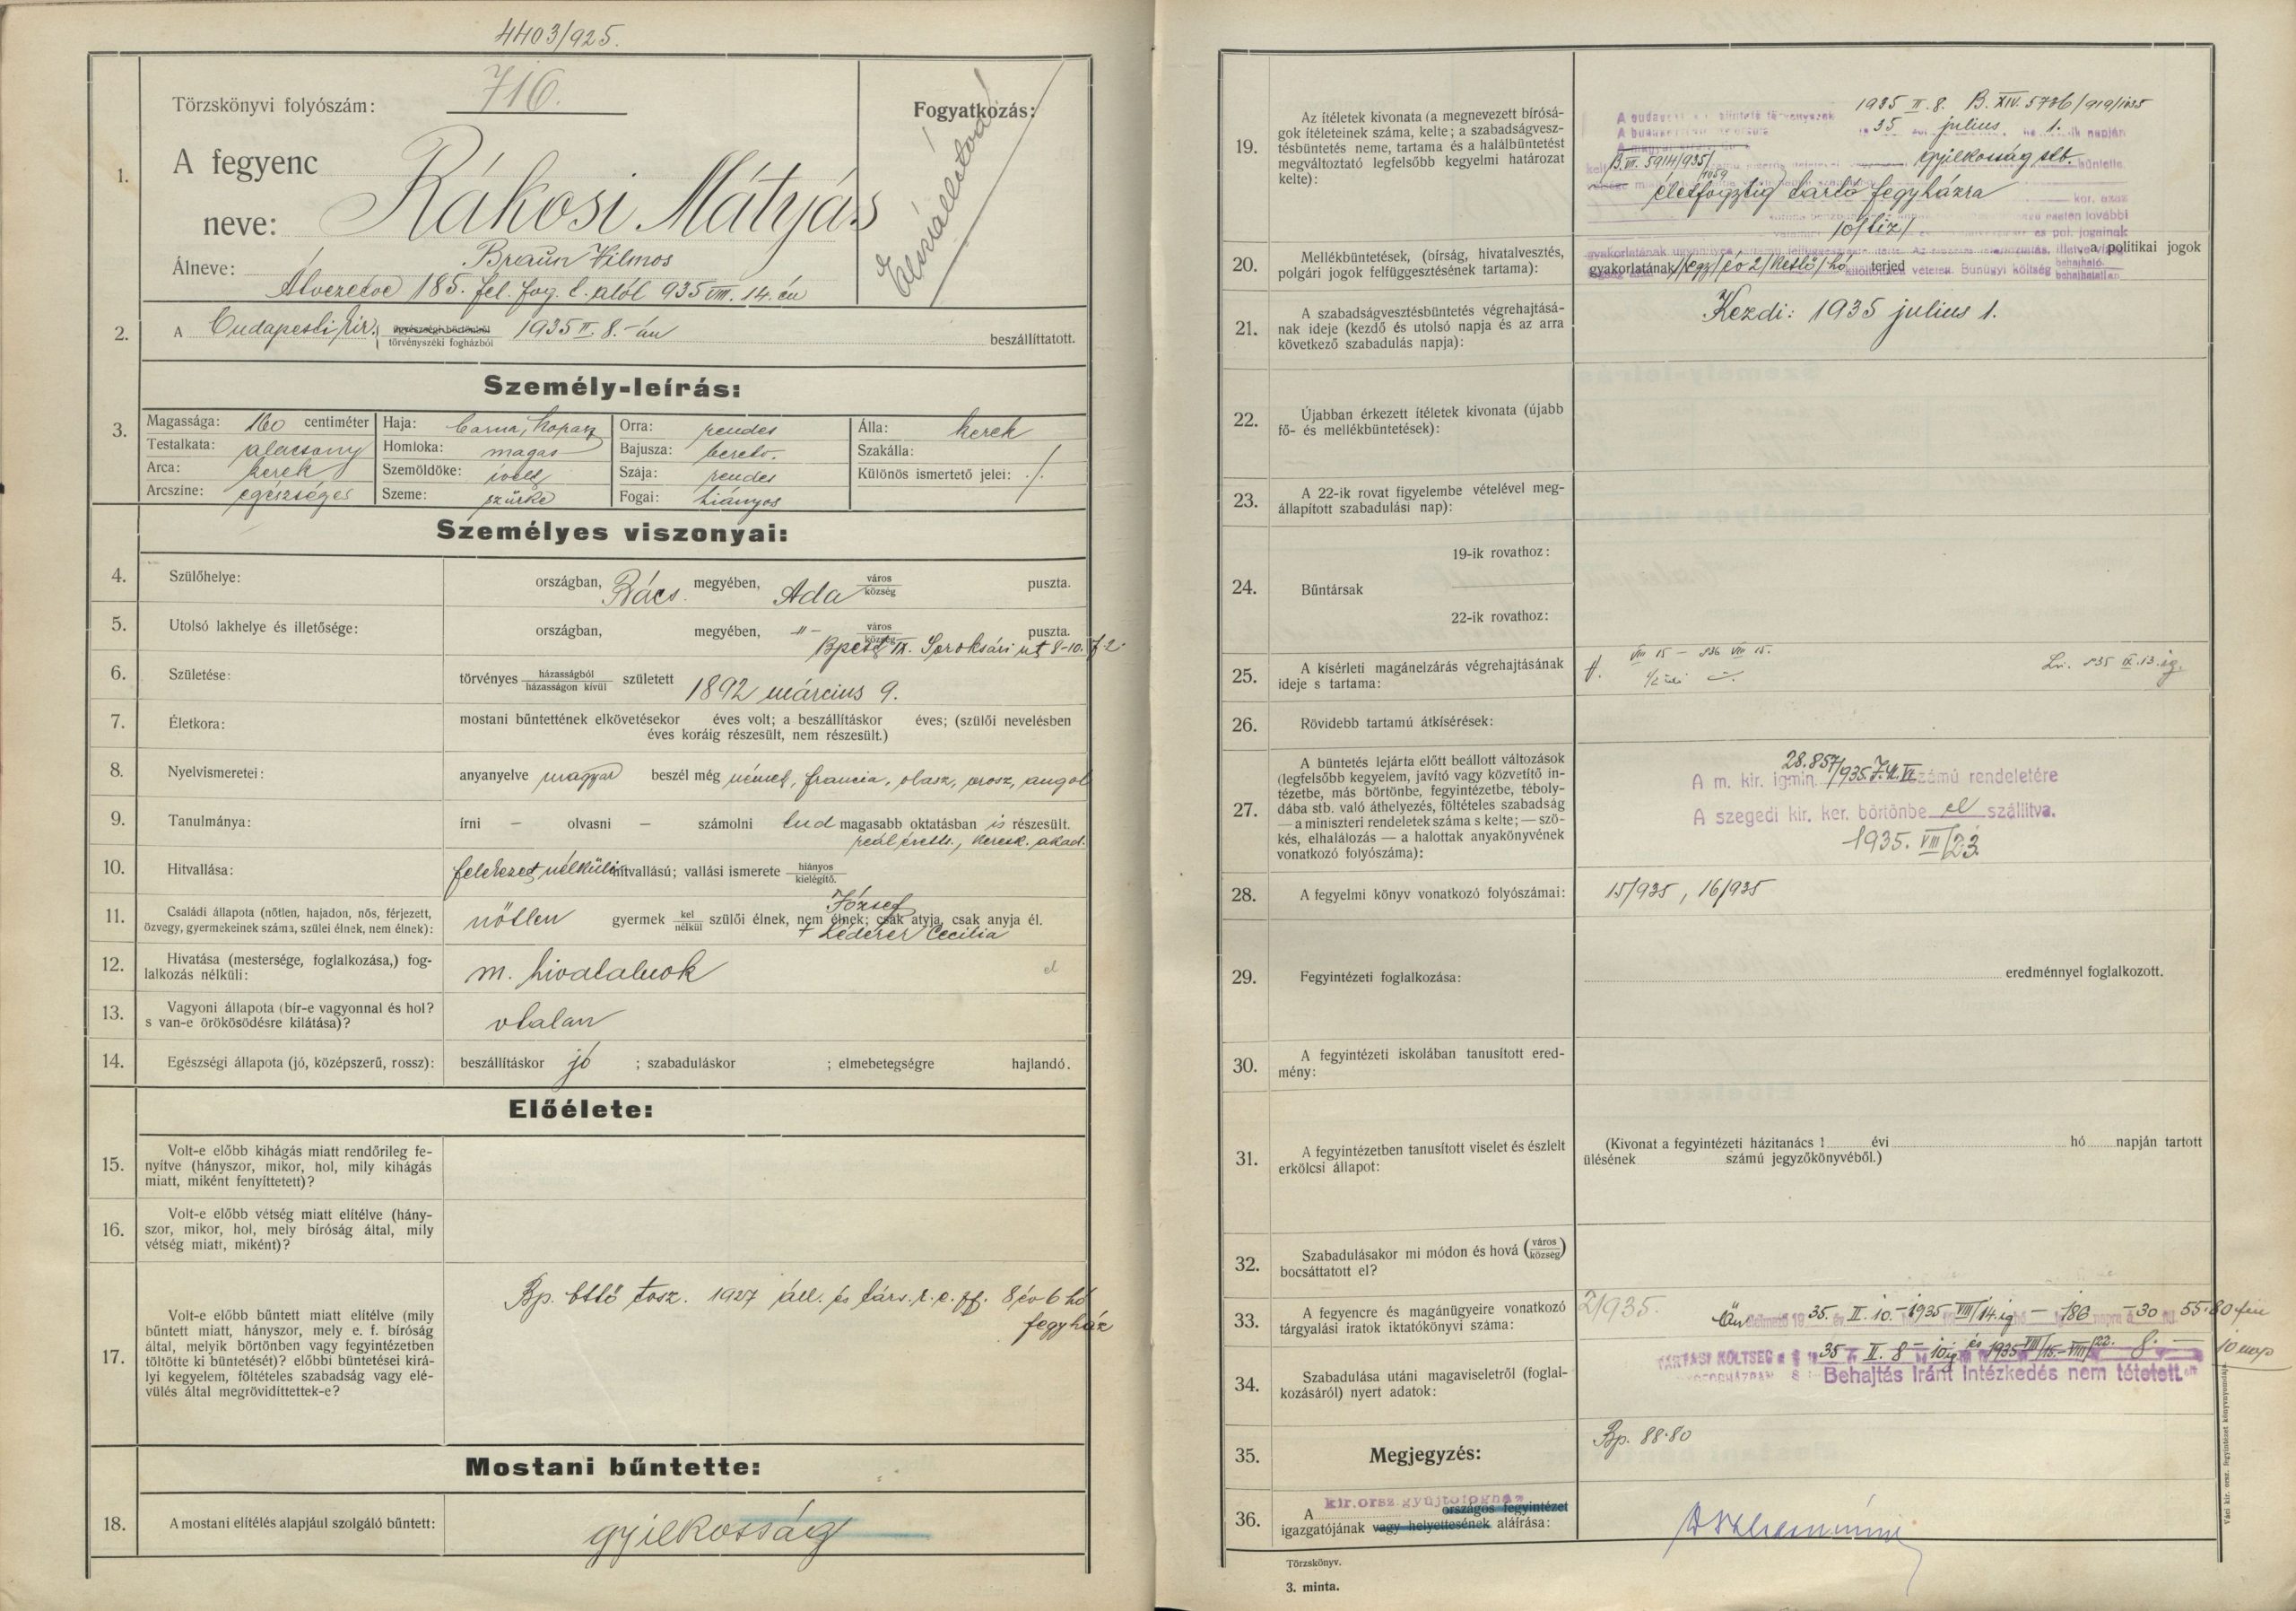 4403/925.
Törzskönyvi folyószám: 716.
Fogyatkozás:
Elszállítva
1.
A fegyenc
neve: Rákosi Mátyás
Braun Vilmos
Álneve:
Átvezetve 185. fel. fog. l. alól 935 VIII. 14.-én
2.
A Budapesti kir. ügyészségi börtönből
törvényszéki fogházból
1935 II. 8.-án
beszállíttatott.
Személy-leírás:
3.
Magassága: 160 centiméter
Haja: barna, kopasz
Orra: rendes
Álla: kerek
Testalkata: alacsony
Homloka: magas
Bajusza: beretv.
Szakálla:
Arca: kerek
Szemöldöke: ívelt
Szája: rendes
Különös ismertető jelei: ./.
Arcszíne: egészséges
Szeme: szürke
Fogai: hiányos
Személyes viszonyai:
4.
Szülőhelye:
országban, Bács megyében, Ada város
község
puszta.
5.
Utolsó lakhelye és illetősége:
országban, megyében, -"- város
község
puszta.
Bpest IX. Soroksári ut 8-10. f 2.
6.
Születése:
törvényes házasságból
házasságon kívül
született 1892 március 9.
7.
Életkora:
mostani bűntettének elkövetésekor éves volt; a beszállításkor éves; (szülői nevelésben
éves koráig részesült, nem részesült.)
8.
Nyelvismeretei:
anyanyelve magyar beszél még német, francia, olasz, orosz, angol
9.
Tanulmánya:
írni – olvasni – számolni tud magasabb oktatásban is részesült.
reál éretts., keresk. akad.
10.
Hitvallása:
felekezet nélküli hitvallású; vallási ismerete hiányos
kielégítő.
11.
Családi állapota (nőtlen, hajadon, nős, férjezett,
özvegy, gyermekeinek száma, szülei élnek, nem élnek):
József
nőtlen gyermek kel
nélkül
szülői élnek, nem élnek; csak atyja, csak anyja él.
+ Léderer Cecilia
12.
Hivatása (mestersége, foglalkozása,) fog-
lalkozás nélküli:
m. hivatalnok
el
13.
Vagyoni állapota (bír-e vagyonnal és hol?
s van-e örökösödésre kilátása)?
vtalan
14.
Egészségi állapota (jó, középszerű, rossz):
beszállításkor jó ; szabaduláskor ; elmebetegségre hajlandó.
Előélete:
15.
Volt-e előbb kihágás miatt rendőrileg fe-
nyítve (hányszor, mikor, hol, mily kihágás
miatt, miként fenyíttetett)?
16.
Volt-e előbb vétség miatt elítélve (hány-
szor, mikor, hol, mely bíróság által, mily
vétség miatt, miként)?
17.
Volt-e előbb bűntett miatt elítélve (mily
bűntett miatt, hányszor, mely e. f. bíróság
által, melyik börtönben vagy fegyintézetben
töltötte ki büntetését)? előbbi büntetései kirá-
lyi kegyelem, föltételes szabadság vagy elé-
vülés által megrövidíttettek-e?
Bp. bttő tvsz. 1927 áll. és társ. r. e. ff. 8 év 6 hó
fegyház
Mostani bűntette:
18.
A mostani elítélés alapjául szolgáló bűntett:
gyilkosság
19.
Az ítéletek kivonata (a megnevezett bírósá-
gok ítéleteinek száma, kelte; a szabadságvesz-
tésbüntetés neme, tartama és a halálbüntetést
megváltoztató legfelsőbb kegyelmi határozat
kelte):
1935 II. 8. B. XIV. 5736/919/1035
35 julius 1. ik napján
B. VII. 5914/935/1059
gyilkosság stb. büntette
életfogytig tartó fegyházra
10/tiz/
20.
Mellékbüntetések, (bírság, hivatalvesztés,
polgári jogok felfüggesztésének tartama):
a politikai jogok
gyakorlatának /egy/ év 2/kettő/ hó terjed
Bűnügyi költség behajható.
behajthatatlan
21.
A szabadságvesztésbüntetés végrehajtásá-
nak ideje (kezdő és utolsó napja és az arra
következő szabadulás napja):
Kezdi: 1935 julius 1.
22.
Újabban érkezett ítéletek kivonata (újabb
fő- és mellékbüntetések):
23.
A 22-ik rovat figyelembe vételével meg-
állapított szabadulási nap):
24.
Bűntársak
19-ik rovathoz:
22-ik rovathoz:
25.
A kísérleti magánelzárás végrehajtásának
ideje s tartama:
VIII 15 – 936 VIII 15.
935 IX. 13. ig.
26.
Rövidebb tartamú átkísérések:
27.
A büntetés lejárta előtt beállott változások
(legfelsőbb kegyelem, javító vagy közvetítő in-
tézetbe, más börtönbe, fegyintézetbe, téboly-
dába stb. való áthelyezés, föltételes szabadság
— a miniszteri rendeletek száma s kelte; — szö-
kés, elhalálozás — a halottak anyakönyvének
vonatkozó folyószáma):
A m. kir. igmin. 28.857/935. I.M. VI számú rendeletére
A szegedi kir. ker. börtönbe el szállítva.
1935. VIII/23.
28.
A fegyelmi könyv vonatkozó folyószámai:
15/935, 16/935
29.
Fegyintézeti foglalkozása:
eredménnyel foglalkozott.
30.
A fegyintézeti iskolában tanusított ered-
mény:
31.
A fegyintézetben tanusított viselet és észlelt
erkölcsi állapot:
(Kivonat a fegyintézeti házitanács 1 évi hó napján tartott
ülésének számú jegyzőkönyvéből.)
32.
Szabadulásakor mi módon és hová (város
község)
bocsáttatott el?
33.
A fegyencre és magánügyeire vonatkozó
tárgyalási iratok iktatókönyvi száma:
2/1935.
Ön élelmező 1935. II. 10.–1935 VIII/14. ig – 186 napra á –30 55·80 fill
34.
Szabadulása utáni magaviseletről (foglal-
kozásáról) nyert adatok:
TARTÁSI KÖLTSÉG 1935 II. 8 – 10 ig és 1935 VIII/15.–VIII/22. 8. – 10 nap
FOGHÁZBAN Behajtás iránt intézkedés nem tétetett.
35.
Megjegyzés:
Bp. 88·80
36.
A kir. orsz. gyüjtőfogház országos fegyintézet
igazgatójának vagy helyettesének aláírása:
Törzskönyv.
3. minta.
Váci kir. orsz. fegyintézet könyvnyomdája.